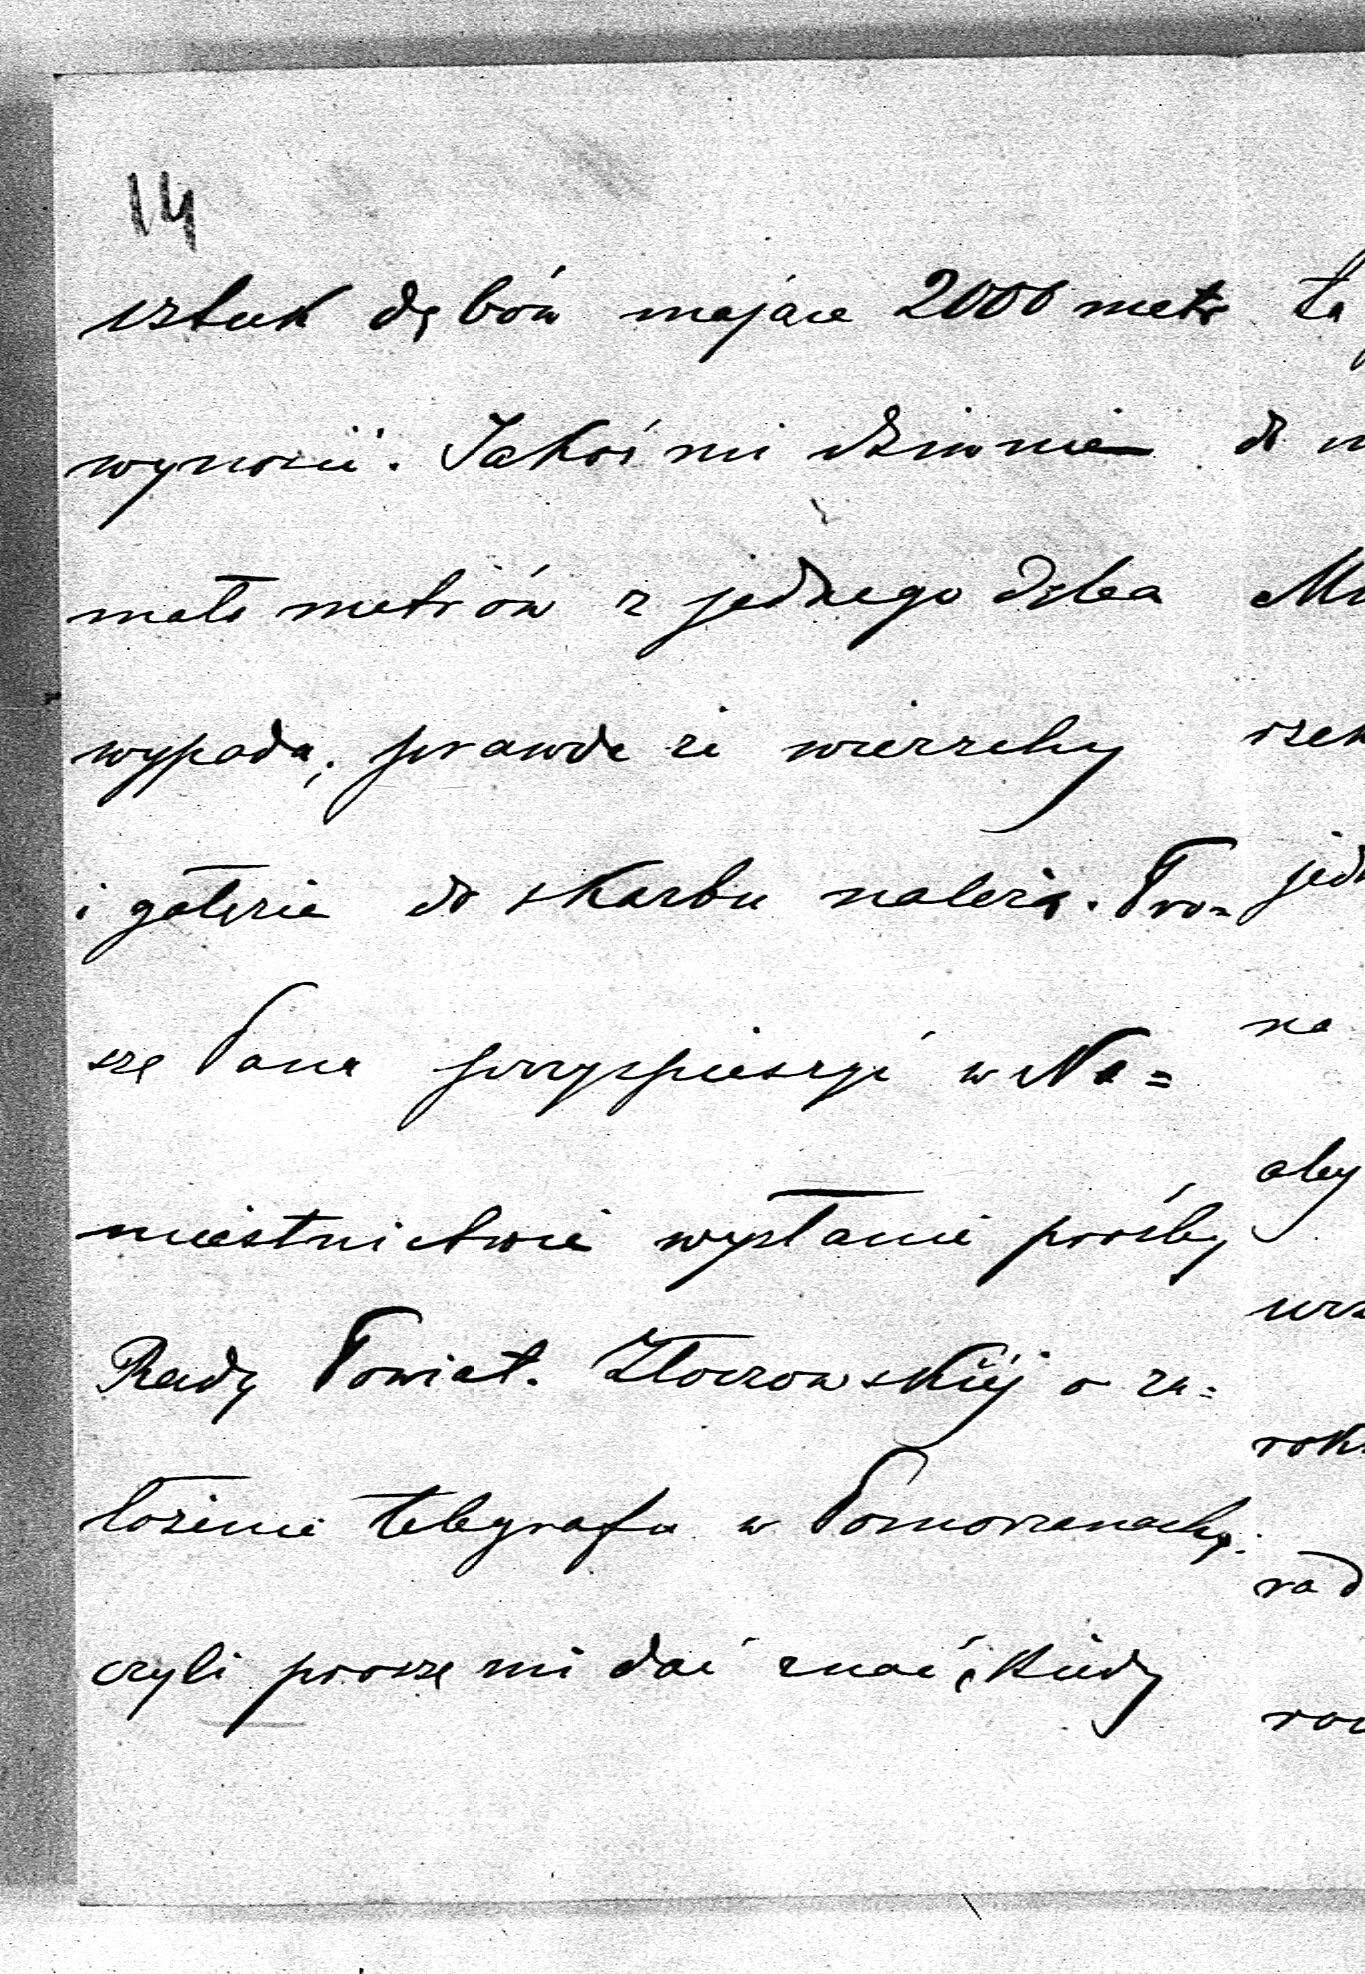 14
sztuk dębów mające 2000 metr
wynosić. Jakoś mi dziwnie
mało metrów z jednego dęba
wypada; prawda że wierzchy
i gałęzie do skarbu należą. Pro=
szę Pana przyspieszyć w Na=
miestnictwie wysłanie prośby
Rady Powiat. Złoczowskiéj o za=
łożenie telegrafu w Pomorzanach,
czyli proszę mi dać znać, kiedy
ta
do
rzek
jed
na
aby
urz
rok
rad